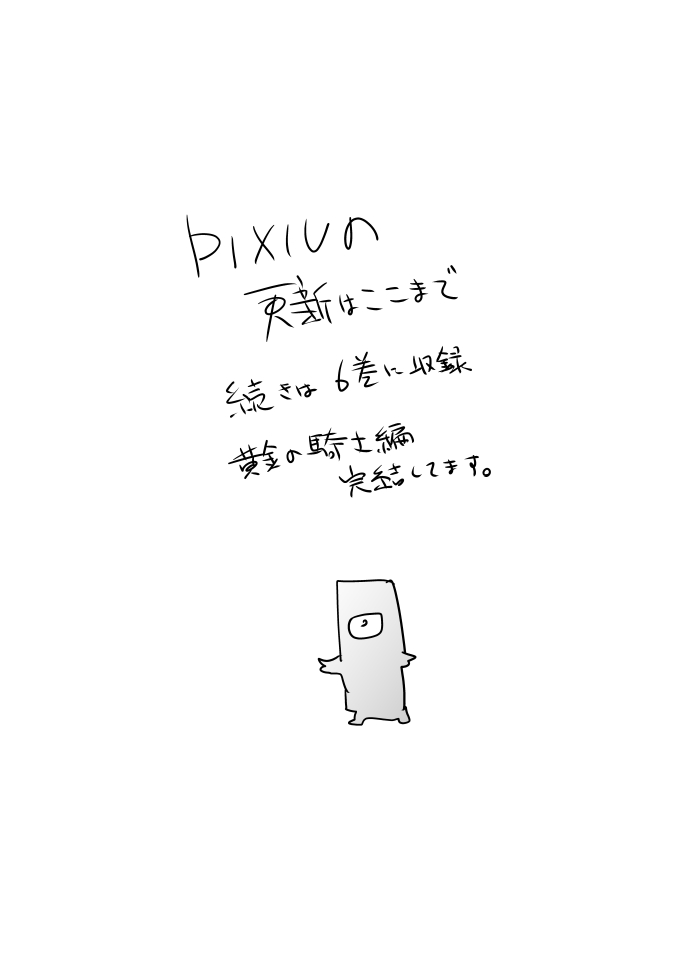 pixivの
更新はここまで
続きは 6巻に収録
黄金の騎士編
完結してます。